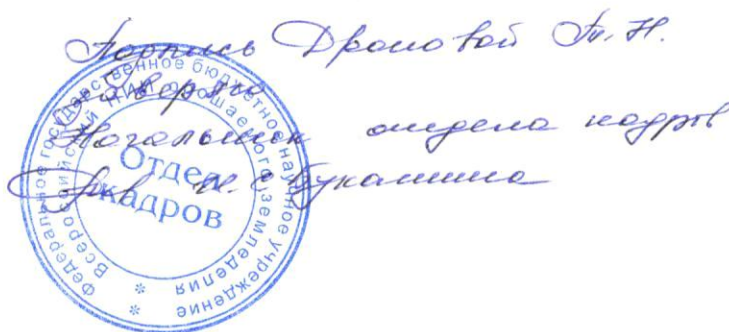 Подпись Дроновой Т. Н.
заверяю
Начальник отдела кадров
Н. С. Букашина
Федеральное государственное бюджетное научное учреждение
Всероссийский НИИ орошаемого земледелия
Отдел
кадров